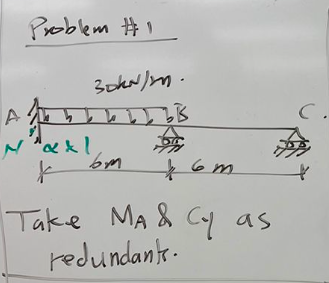 Problem #1
30kN/m.
A B C.
6m 6m
Take MA & Cy as
redundants.